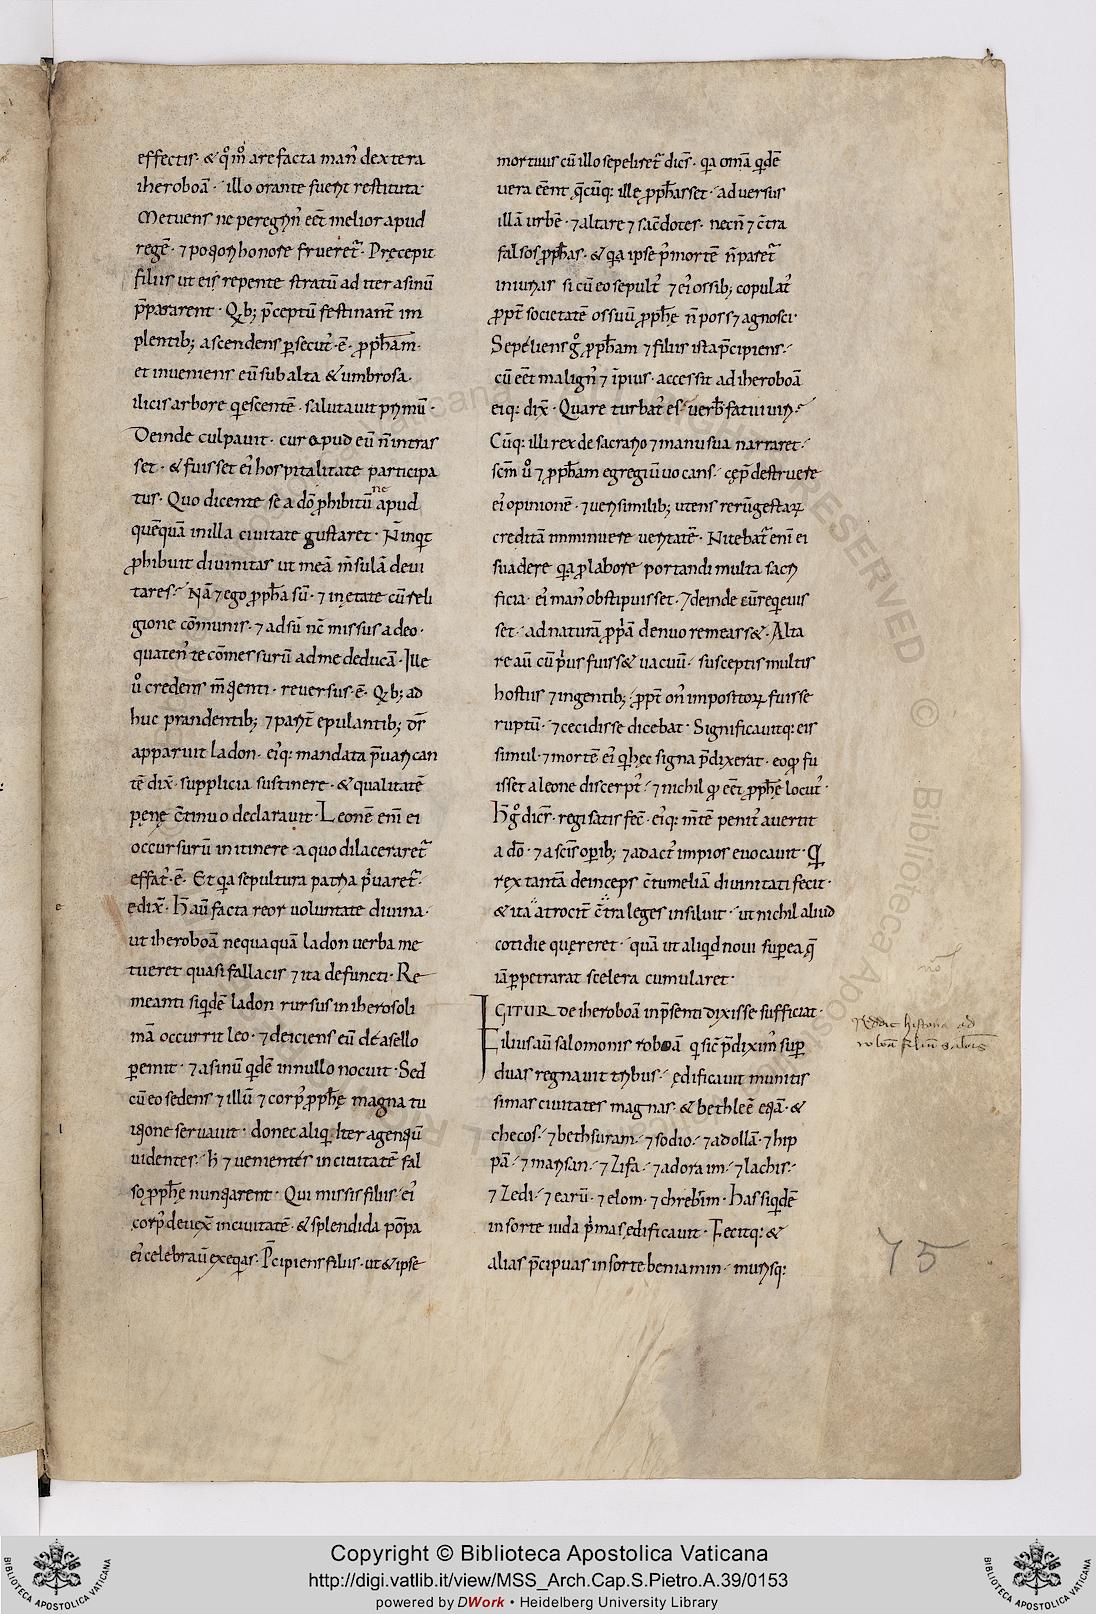 effectis · & qͦm̄ arefacta man᷒ dextera
iheroboā · illo orante fuert̄ restituta ·
Metuens ne peregrin᷒ eēt melior apud
regē · ⁊ potiori honore frueret᷑ · Precepit
filiis ut eis repente stratū ad iter asinū
p̄pararent · Qib; p̄ceptū festinant᷑ im
plentib; ascendens ꝑsecut᷒ · ē · ꝓph̄am ·
et inueniens eū sub alta & umbrosa ·
ilicis arbore qescentē · salutauit primū ·
Deinde culpauit · cur apud eū n̄ intras
set · & fuisset ei᷒ hospitalitate participa
tus · Quo dicente se a dō ꝓhibitū ne apud
quēquā in illa ciuitate gustaret · N̄ inqͥt
ꝓhibuit diuinitas ut meā m̄sulā deui
tares · Nā ⁊ ego ꝓph̄a sū · ⁊ in etate cū reli
gione cōmunis · ⁊ adsū nc̄ missus a deo ·
quaten᷒ te cōmessurū ad me deducā · Ille
u̾ credens m̄tienti · reuersus · ē · Qib; ad
huc prandentib; ⁊ parit᷑ epulantib; ds̄
apparuit ladon · eiq: mandata p̄uarican
tē dix̄ · supplicia sustinere · & qualitatē
penę c̄tinuo declarauit · Leonē enī ei
occursurū in itinere · a quo dilaceraret᷑
effat᷒ · ē · Et qa sepultura patria pͥuaret᷑ ·
edix̄ · H̄ aū facta reor uoluntate diuina ·
ut iheroboā nequaquā ladon uerba me
tueret quasi fallacis ⁊ ita defuncti · Re
meanti siqͥdē ladon rursus in iherosoli
mā occurrit leo · ⁊ deiciens eū de asello
ꝑemit · ⁊ asinū qͥdē in nullo nocuit · Sed
cū eo sedens ⁊ illū ⁊ corp᷒ ꝓph̄ę magna tu
itione seruauit · donec aliqͥ iter agentiū
uidentes · h̄ ⁊ uenientes in ciuitatē fal
so ꝓph̄ę nuntiarent · Qui missis filiis · ei᷒
corp᷒ deuex̄ in ciuitatē · & splendida pōpa
ei᷒ celebrauͥ exeqͥas · P̄cipiens filiis · ut & ipse
mortuus cū illo sepeliret᷑ dic̄s · qa om̄a qͥdē
uera eēnt q̄cūq: ille ꝓph̄asset · aduersus
illā urbē · ⁊ altare ⁊ sac̄dotes · necn̄ ⁊ c̄tra
falsos ꝓph̄as · & qa ipse p᷒mortē n̄ paret᷑
iniurias si cū eo sepult᷒ ⁊ ei᷒ ossib; copulat᷒
ꝓpt᷑ societatē ossuū ꝓph̄ę n̄ poss⁊ agnosci ·
Sepeliens gͦ ꝓph̄am ⁊ filiis ista p̄cipiens ·
cū eēt malign᷒ ⁊ īpius · accessit ad iheroboā
eiq: dix̄ · Quare turbat᷒ es · uerb̄ fatui uiri ·
Cūq: illi rex de sacrario ⁊ manu sua narraret ·
scm̄ u̾ ⁊ ꝓph̄am egregiū uocans · cępͥ destruere
ei᷒ opinionē · ⁊ uerisimilib; utens rerū gestaꝝ
creditā imminuere ueritatē · Nitebat᷑ enī ei
suadere qa ꝓ labore portandi multa sacri
ficia · ei᷒ man᷒ obstipuisset · ⁊ deinde cū reqͥeuis
set · ad naturā ꝓpͥā denuo remeass& · Alta
re aū cū pͥus fuiss& uacuū · susceptis multis
hostiis ⁊ ingentib; · ꝓpt᷑ on᷒ impositoꝝ fuisse
ruptū · ⁊ cecidisse dicebat · Significauitq: eis
simul · ⁊ mortē ei᷒ qͥ hęc signa p̄dixerat · eo ꝙ fu
isset a leone discerpt᷒ · ⁊ nichil ꝙ eēt ꝓph̄ę locut᷒ ·
H̄ gͦ dicn̄s · regi satis fec̄ · ei᷒q: m̄tē penit᷒ auertit
a dō · ⁊ a sc̄is oꝑib; ⁊ ad act᷒ impios euocauit · Qͥ
rex tantā deinceps c̄tumeliā diuinitati fecit ·
& ita atrocit᷑ c̄tra leges insiluit · ut nichil aliud
cotidie quęreret · quā ut aliqͥd noui suꝑ ea q̄
iā ꝑpetrarat scelera cumularet ·
IGITUR de iheroboā in p̄senti dixisse sufficiat ·
Filius aū salomonis roboā qͥ sic̄ p̄diximͥ suꝑ
duas regnauit tribus · ędificauit munitis
simas ciuitates magnas · & bethleē eqͥ̄ā · &
checos · ⁊ bethsuram · ⁊ sodio · ⁊ adollā · ⁊ hip
pā · ⁊ marisan · ⁊ Zifa · ⁊ adoraim · ⁊ lachis ·
⁊ Zedi · ⁊ earū · ⁊ elom · ⁊ chrebͥm · has siqͥdē
in sorte iuda pͥmas ędificauit · Fecitq: &
alias p̄cipuas in sorte beniamin · murisq:
Reddit historia ad
75
Copyright © Biblioteca Apostolica Vaticana
http://digi.vatlib.it/view/MSS_Arch.Cap.S.Pietro.A.39/0153
powered by DWork • Heidelberg University Library